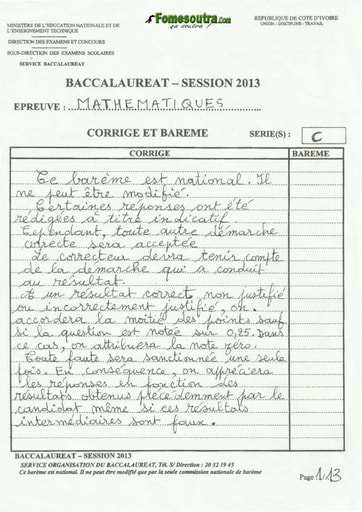 MINISTERE DE L'EDUCATION NATIONALE ET DE
L'ENSEIGNEMENT TECHNIQUE
DIRECTION DES EXAMENS ET CONCOURS
SOUS-DIRECTION DES EXAMENS SCOLAIRES
SERVICE BACCALAUREAT
Fomesoutra.com
ça soutra !
REPUBLIQUE DE COTE D'IVOIRE
UNION - DISCIPLINE - TRAVAIL
BACCALAUREAT – SESSION 2013
EPREUVE : MATHEMATIQUES
CORRIGE ET BAREME
SERIE(S) : C
CORRIGE
BAREME
Ce barème est national. Il
ne peut être modifié.
Certaines réponses ont été
rédigées à titre indicatif.
Cependant, toute autre démarche
correcte sera acceptée
Le correcteur devra tenir compte
de la démarche qui a conduit
au résultat.
A un résultat correct, non justifié
ou incorrectement justifié, on
accordera la moitié des points sauf
si la question est notée sur 0,25. Dans
ce cas, on attribuera la note zéro.
Toute faute sera sanctionnée une seule
fois. En conséquence, on appréciera
les réponses en fonction des
résultats obtenus précédemment par le
candidat même si ces résultats
intermédiaires sont faux.
BACCALAUREAT – SESSION 2013
SERVICE ORGANISATION DU BACCALAUREAT, Tél. S/ Direction : 20 32 19 45
Ce barème est national. Il ne peut être modifié que par la seule commission nationale de barème
Page 1/13